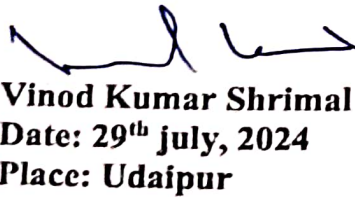 Vinod Kumar Shrimal
Date: 29th july, 2024
Place: Udaipur